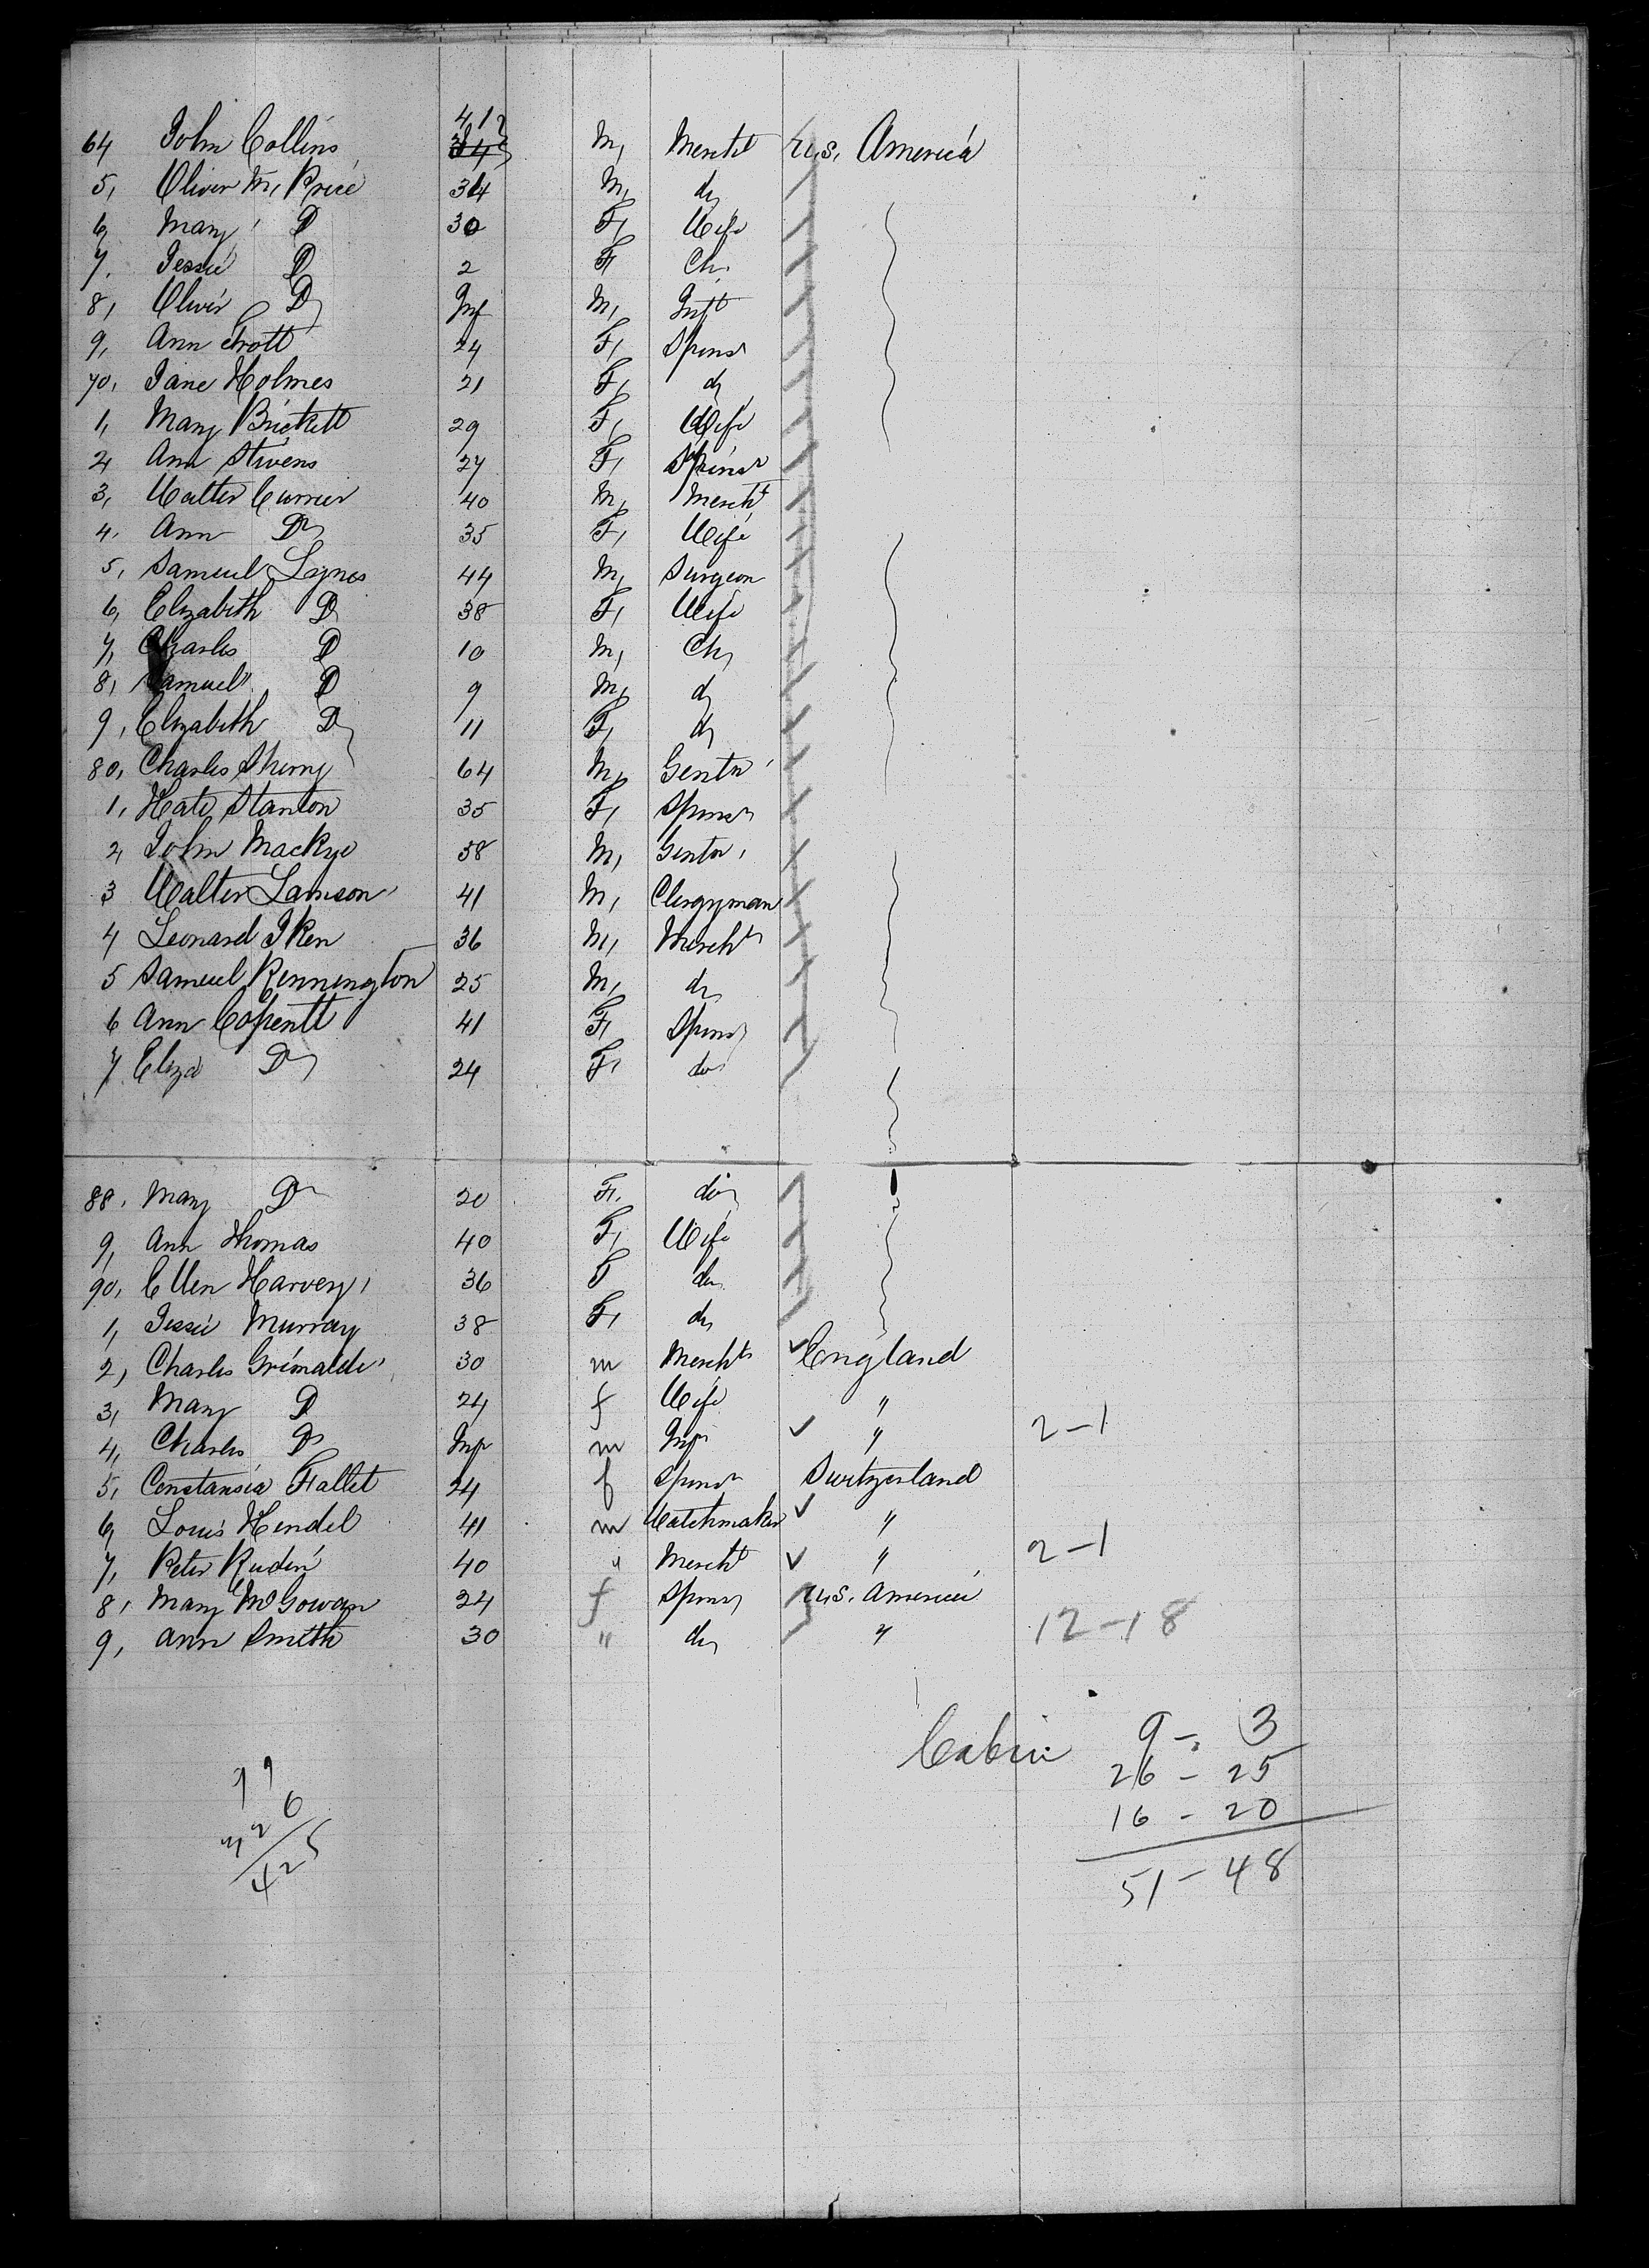 64 John Collins 41 34 M, Mercht U.S. America
5, Oliver M, Price 34 M, do
6, Mary D 30 F, Wife
7, Jessie D 2 F Ch.
8, Oliver D Inf M, Inft
9, Ann Trott 24 F, Spinsr
70, Jane Holmes 21 F, do
1, Mary Brickett 29 F, Wife
2, Ann Stivens 27 F, Spinsr
3, Walter Currier 40 M, Mercht
4, Ann Do 35 F, Wife
5, Samuel Lynes 44 M, Surgeon
6, Elizabeth D 38 F, Wife
7, Charles D 10 M, Ch,
8, Samuel D 9 M, do
9, Elizabeth D 11 F, do
80, Charles Sherry 64 M, Gentn
1, Kate Stanton 35 F, Spinsr
2, John Mackye 38 M, Gentn,
3 Walter Lamson 41 M, Clergyman
4 Leonard Iken 36 M, Mercht
5 Samuel Rennington 25 M, do
6 Ann Copentt 41 F, Spinsr
7 Eliza Do 24 F, do
88, Mary Do 20 F. do
9, Ann Thomas 40 F, Wife
90, Ellen Harvey, 36 F do
1, Jessie Murray 38 F, do
2, Charles Grimalde 30 m Mercht England
3, Mary D 24 f Wife "
4, Charles Do Inf m Inf " 2-1
5, Constansia Fallet 24 f Spinsr Switzerland
6, Louis Hendel 41 m Watchmaker "
7, Peter Rudini 40 " Mercht " 2-1
8, Mary McGowan 24 f Spinsr U.S. America
9, Ann Smith 30 " do " 12-18
Cabin 9 - 3
26 - 25
16 - 20
51 - 48
99
326
425